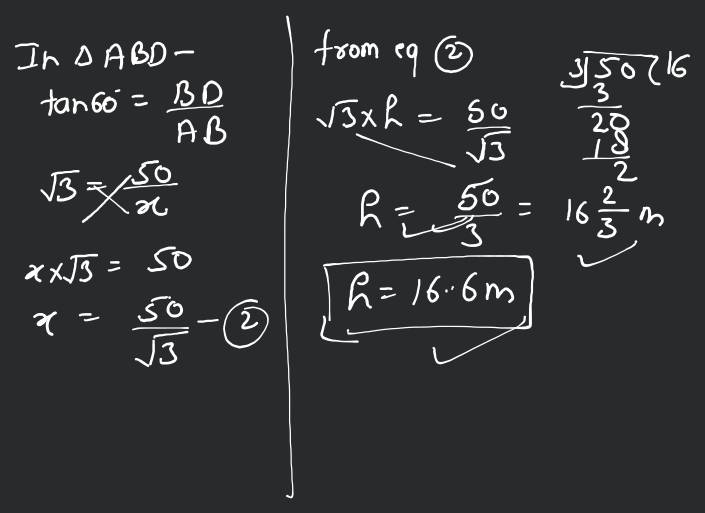 In Δ ABD –
tan 60° = BD/AB
√3 = 50/x
x × √3 = 50
x = 50/√3 – ②
from eq ②
√3 × h = 50/√3
h = 50/3 = 16 2/3 m
h = 16.6 m
3) 50 (16
3
20
18
2